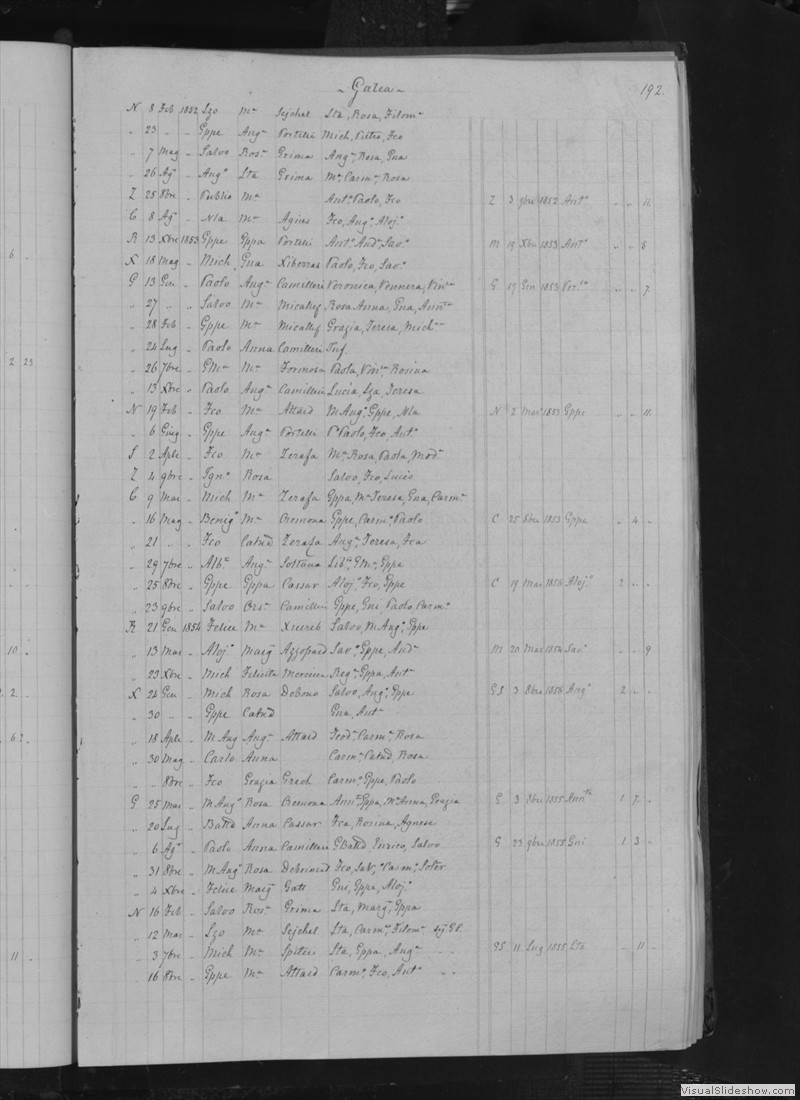 Galea
192.
N 8 Feb 1852 Szo Ma Sejchel Sta, Rosa, Filoma
" 23 " " Gppe Anga Portelli Mich, Pietro, Fco
" 7 Mag " Salvo Rosa Grima Anga, Rosa, Gna
" 26 Ago " Ango Sta Grima Ma, Carma, Rosa
Z 25 8bre " Publio Ma Anto, Paolo, Fco Z 3 9bre 1852 Anto " " 11
C 8 Ago " Nla Ma Agius Fco, Ango, Alojo
R 13 Xbre 1853 Gppe Gppa Portelli Anto, Anda, Savo M 19 Xbre 1853 Anto " " 6
X 18 Mag " Mich Gna Xiberras Paolo, Fco, Savo
G 13 Gen " Paolo Anga Camilleri Veronica, Vennera, Vina G 19 Gen 1853 " " 7
" 27 " " Salvo Ma Micallef Rosa Anna, Gna, Annta
" 28 Feb " Gppe Ma Micallef Grazia, Teresa, Micha
" 24 Lug " Paolo Anna Camilleri Inf.
" 26 7bre " GMa Ma Formosa Paola, Vina Rosina
" 13 Xbre " Paolo Anga Camilleri Lucia, Sza, Teresa
N 19 Feb " Fco Ma Attard MAngo, Gppe, Nla N 2 Mar 1853 Gppe " " 11
" 6 Giug " Gppe Anga Portelli Po Paolo, Fco, Anto
S 2 Aple " Fco Ma Zerafa Ma Rosa, Paola, Moda
Z 4 9bre " Igno Rosa Salvo, Fco, Lucio
C 9 Mar " Mich Ma Zerafa Gppa, Ma Teresa, Gna, Carma
" 16 Mag " Benigo Ma Cremona Gppe, Carmo, Paolo C 25 8bre 1853 Gppe " 4 "
" 21 " " Fco Catnd Zerafa Anga, Teresa, Fca
" 29 7bre " Anga Gppe
" 25 8bre " Gppe Gppa Cassar Alojo, Fco, Gppe C 19 Mar 1856 Alojo 2 " "
" 23 9bre " Salvo Orsa Camilleri Gppe, Gni Paolo Carmo
R 21 Gen 1854 Felice Ma Xuereb Salvo, MAngo, Gppe
" 13 Mar " Alojo Marg Azzopard Savo, Gppe, Anda M 20 Mar 1854 Savo " " 9
" 23 Xbre " Mich Felicita Gppa, Anta
X 24 Gen " Mich Rosa Debono Salvo, Ango, Gppe GS 3 8bre 1856 Ango 2 " "
" 30 " " Gppe Catnd Gna, Anta
" 18 Aple " MAng Anga Attard Teoda, Carma, Rosa
" 30 Mag " Carlo Anna Carma, Catnd, Rosa
" " 8bre " Fco Grazia Grech Carmo, Gppe, Paolo
G 25 Mar " MAngo Rosa Cremona Annta, Gppa, Ma Anna, Grazia G 3 8bre 1855 Annta 1 7 "
" 20 Lug " Battd Anna Cassar Fca, Rosina, Agnese
" 6 Ago " Paolo Anna Camilleri GBattd, Enrico, Salvo G 23 9bre 1855 Gni 1 3 "
" 31 8bre " MAngo Rosa Debrincat Fco, Savo, Carmo, Soter
" 4 Xbre " Felice Marg Gatt Gni, Gppe, Alojo
N 16 Feb " Salvo Rosa Grima Sta, Marga, Gppa
" 12 Mar " Szo Ma Sejchel Sta, Carma, Filoma
" 3 7bre " Mich Ma Spiteri Sta, Gppa, Anga GS 11 Lug 1855 Sta " 11 "
" 16 8bre " Gppe Ma Attard Carmo, Fco, Anto
6
2 23
10
2
6 2
11
VisualSlideshow.com